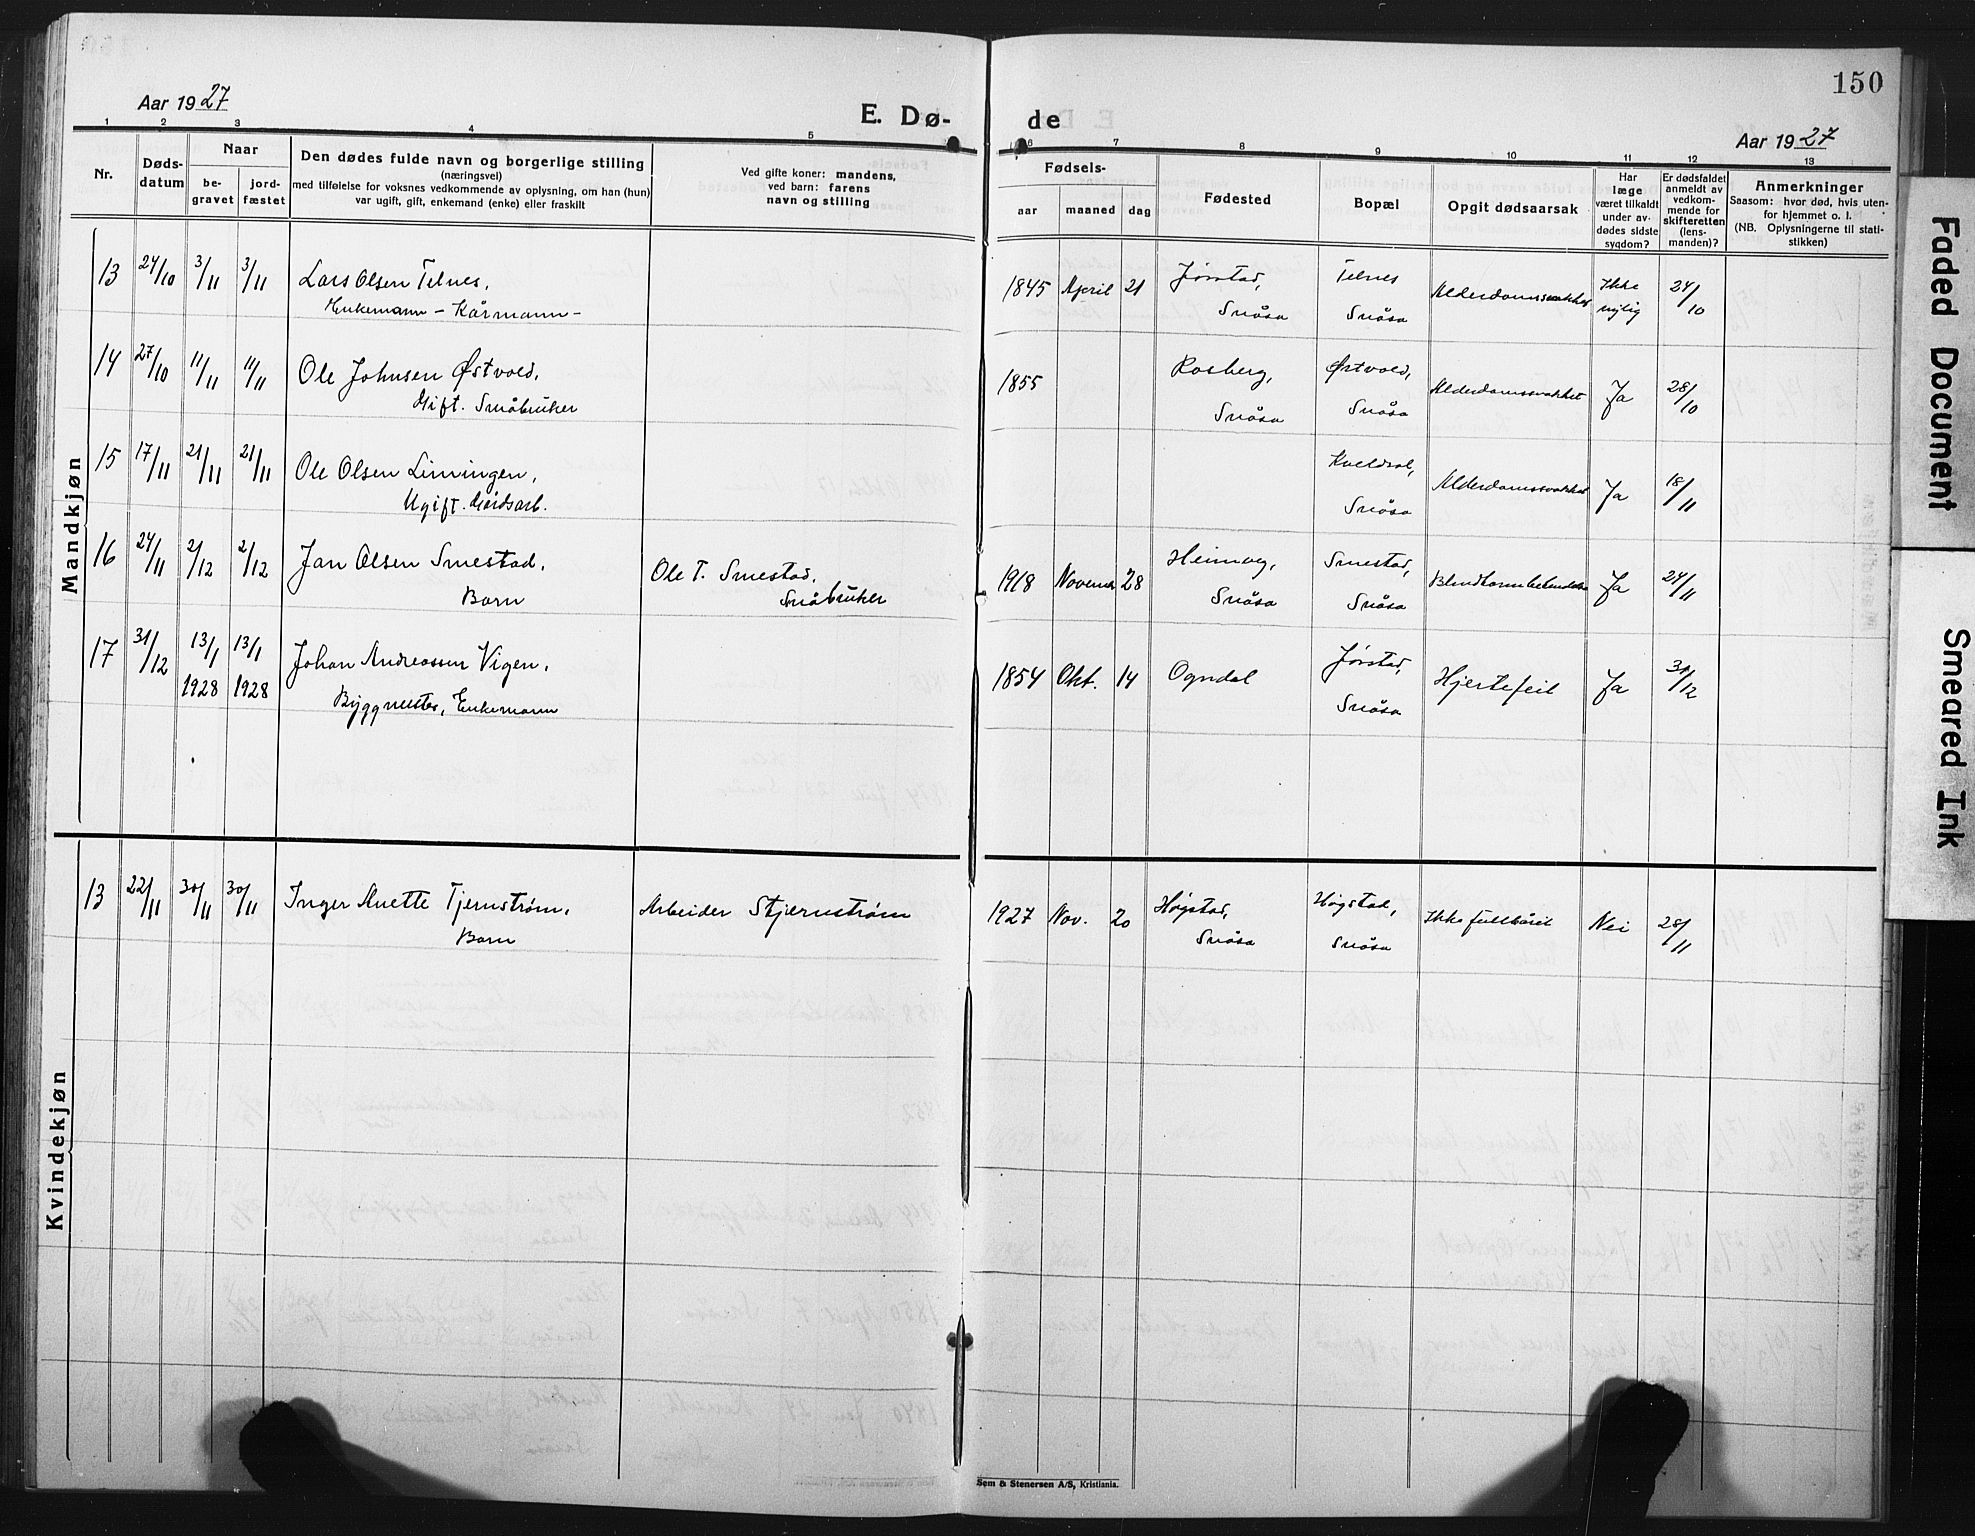 150
Aar 1927
E. Dø-
de
Aar 1927
1 2 3 4 5 6 7 8 9 10 11 12 13
Nr.
Døds-
datum
Naar
be-
gravet
jord-
fæstet
Den dødes fulde navn og borgerlige stilling
(næringsvei)
med tilføielse for voksnes vedkommende av oplysning, om han (hun)
var ugift, gift, enkemand (enke) eller fraskilt
Ved gifte koner: mandens,
ved barn: farens
navn og stilling
Fødsels-
aar maaned dag
Fødested
Bopæl
Opgit dødsaarsak
Har
læge
været tilkaldt
under av-
dødes sidste
sygdom?
Er dødsfaldet
anmeldt av
vedkom-
mende for
skifteretten
(lens-
manden)?
Anmerkninger
Saasom: hvor død, hvis uten-
for hjemmet o. l.
(NB. Oplysningerne til stati-
stikken)
Mandkjøn
13 24/10 3/11 3/11 Lars Olsen Telnes, 1845 April 21 Jørstad, Telnes Alderdomssvakhet Ikke 24/10
Enkemann - Kårmann - Snåsa Snåsa nylig
14 27/10 11/11 11/11 Ole Johnsen Østvold, 1855 Rosberg, Østvold, Alderdomssvakhet Ja 28/10
Gift. Småbruker Snåsa Snåsa
15 17/11 21/11 21/11 Ole Olsen Limingen, Kveldsol, Alderdomssvakhet Ja 18/11
Ugift. Gårdsarb. Snåsa
16 24/11 2/12 2/12 Jan Olsen Smestad, Ole T. Smestad, 1918 November 28 Heimog, Smestad, Ja 24/11
Barn Småbruker Snåsa Snåsa
17 31/12 13/1 13/1 Johan Andreassen Vigen, 1854 Okt. 14 Ogndal Jørstad, Hjertefeil Ja 31/12
1928 1928 Byggmester, Enkemann Snåsa
Kvindekjøn
13 22/11 30/11 30/11 Inger Anette Tjernstrøm, Arbeider Stjernstrøm 1927 Nov. 20 Høgstad, Høgstad, Ikke fullbåret Nei 28/11
Barn Snåsa Snåsa
Sem & Stenersen A/S, Kristiania.
Faded Document
Smeared Ink